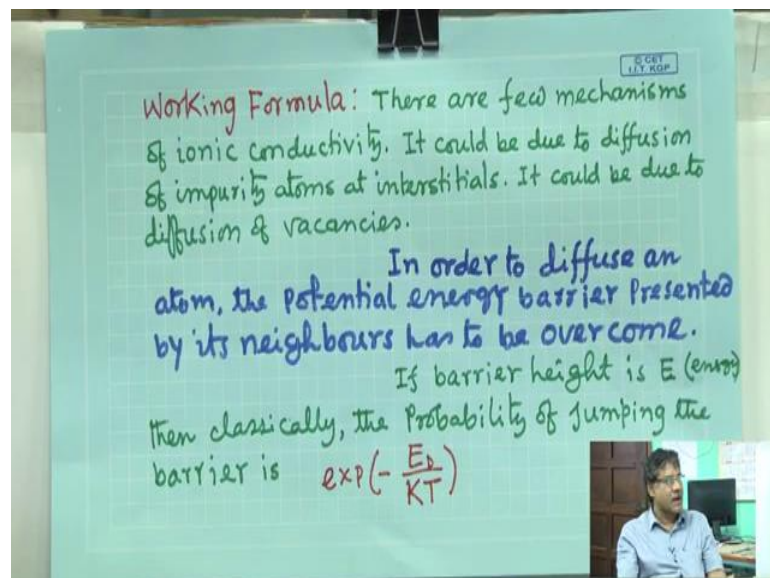 © CET
I.I.T. KGP
Working Formula: There are few mechanisms
of ionic conductivity. It could be due to diffusion
of impurity atoms at interstitials. It could be due to
diffusion of vacancies.
In order to diffuse an
atom, the potential energy barrier presented
by its neighbours has to be overcome.
If barrier height is E (energy)
then classically, the probability of jumping the
barrier is exp(- E_D/KT)